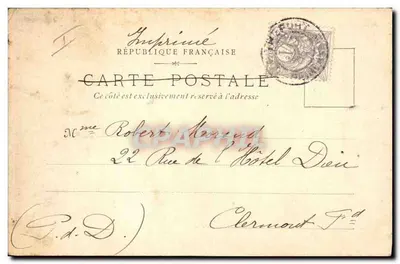 I
Imprimé
RÉPUBLIQUE FRANÇAISE
CARTE POSTALE
Ce côté est exclusivement réservé à l'adresse
Mme Robert
22 Rue de l'Hôtel Dieu
Clermont Fd
(P-d-D.)